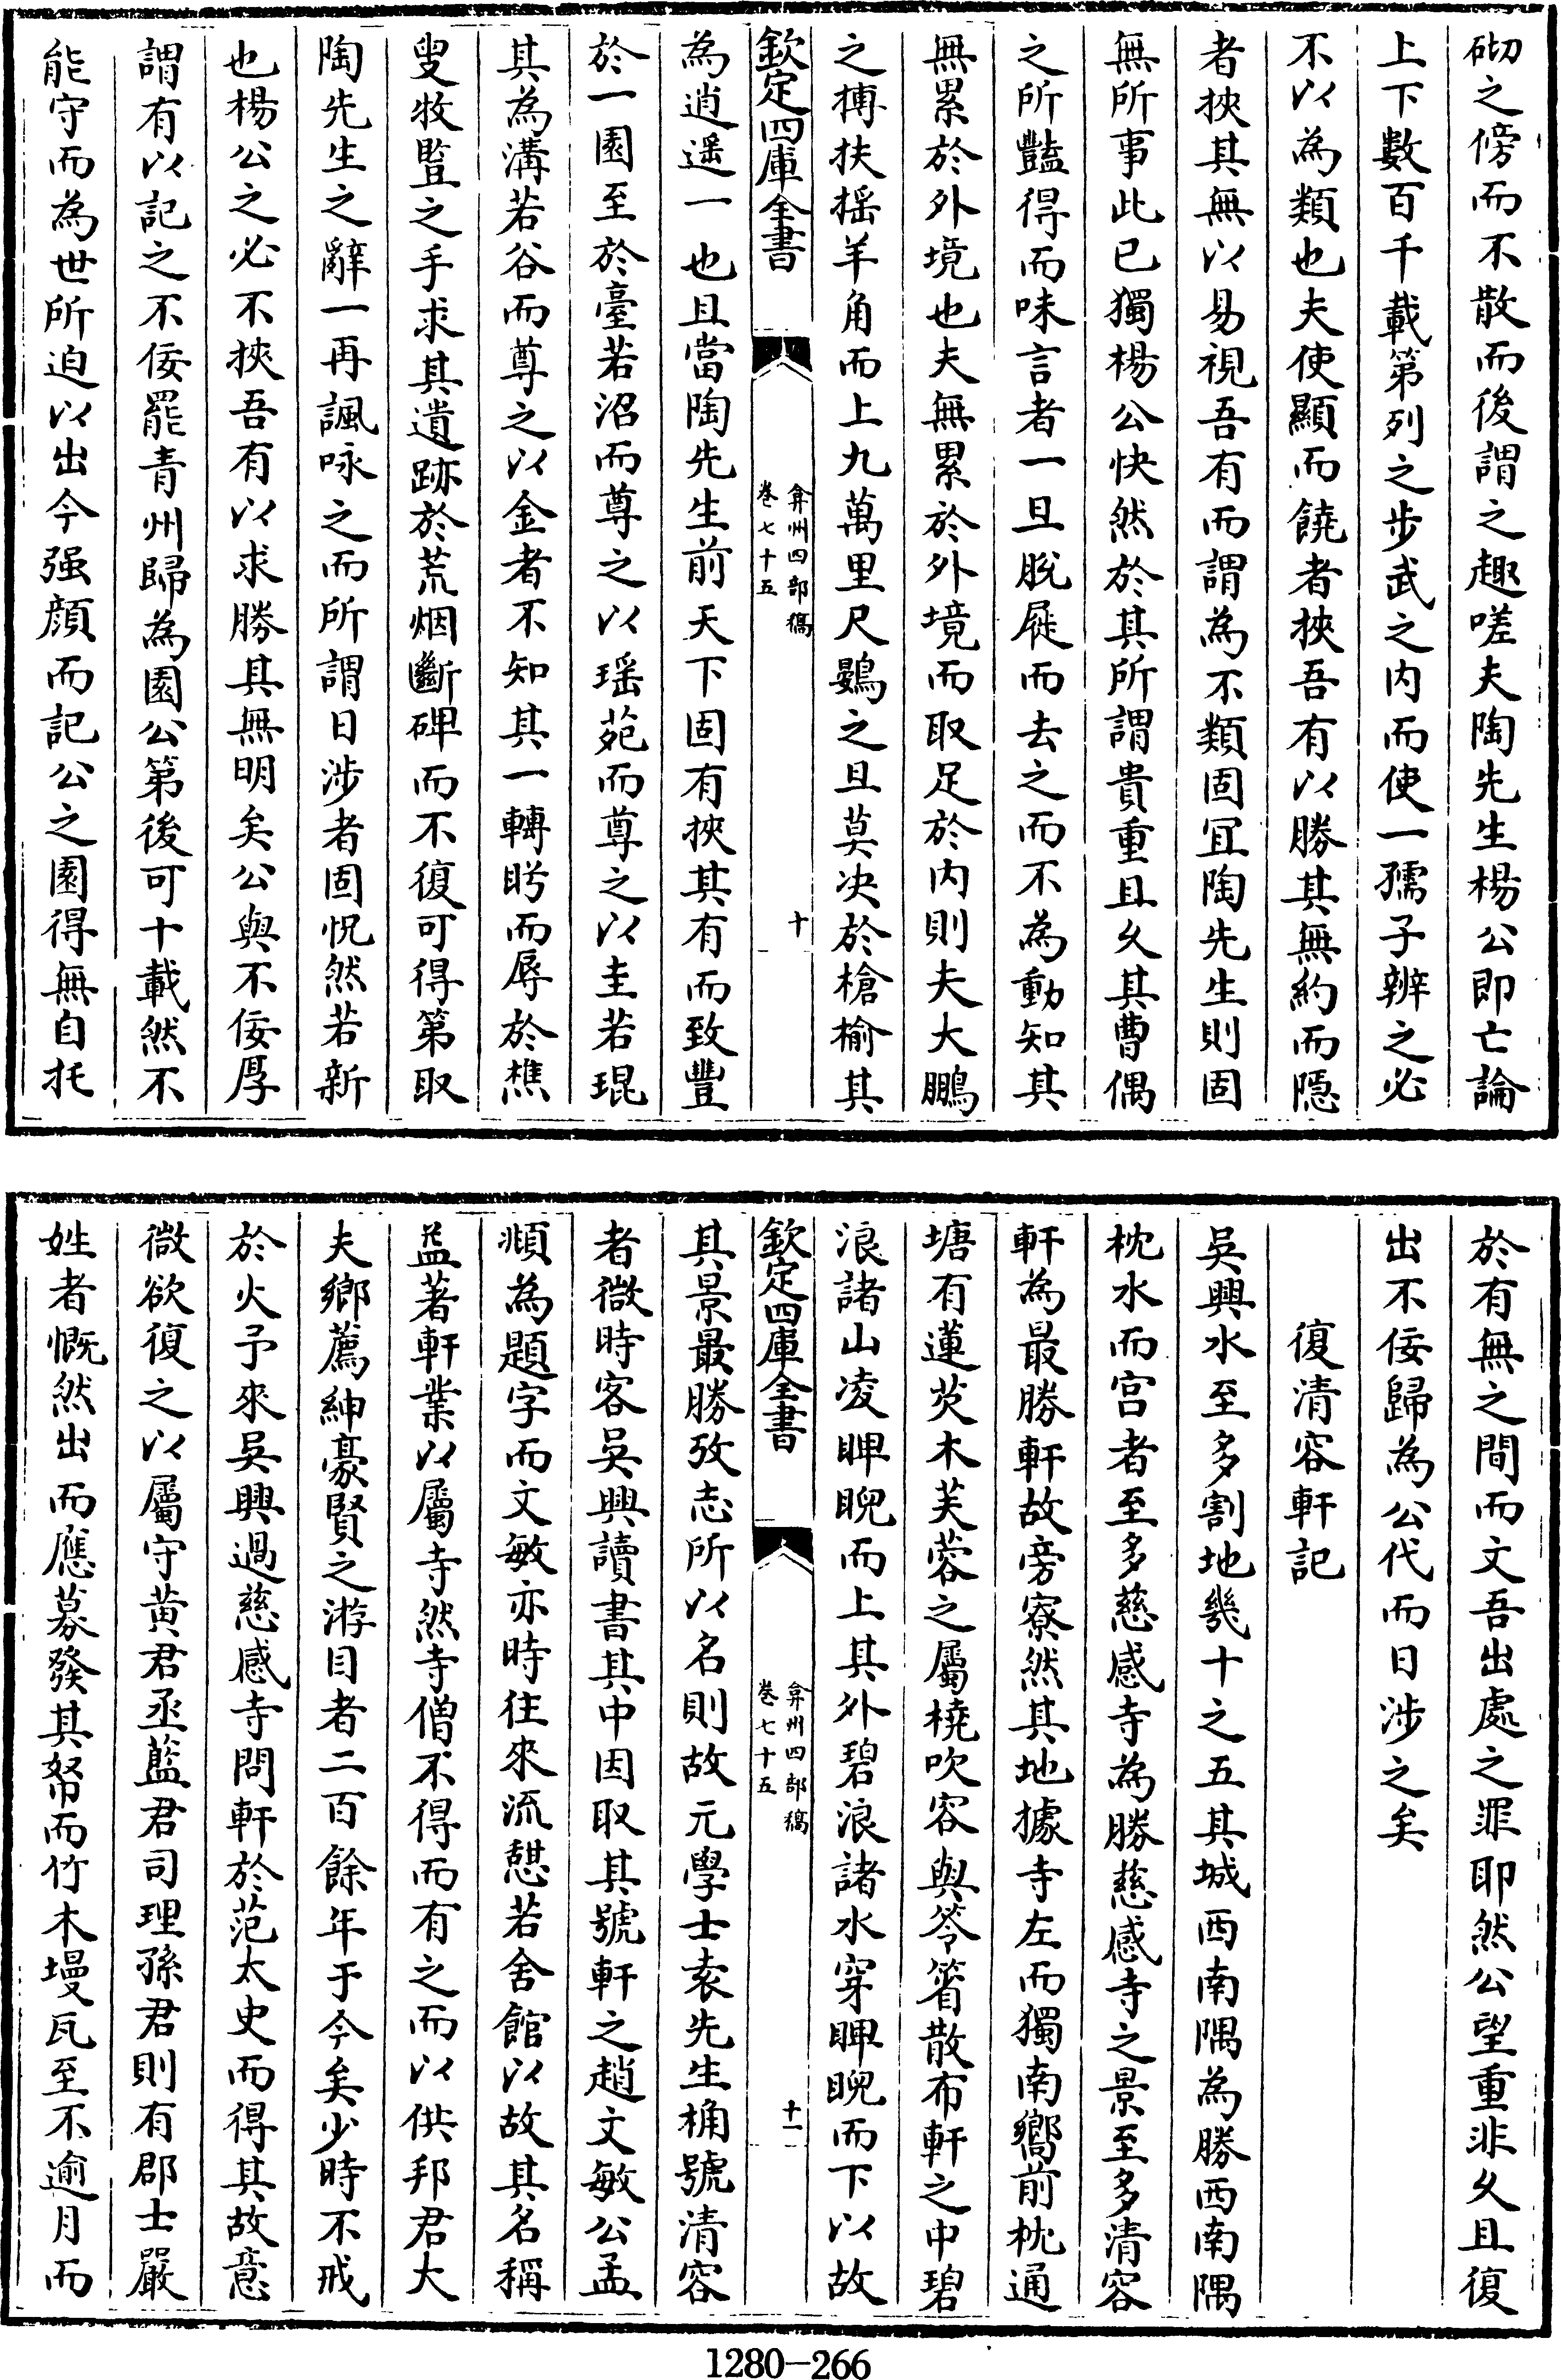 砌之傍而不散而後謂之趣嗟夫陶先生楊公即亡論
上下數百千載第列之步武之内而使一孺子辨之必
不以為類也夫使顯而饒者挾吾有以勝其無約而隱
者挾其無以易視吾有而謂為不類固宜陶先生則固
無所事此已獨楊公快然於其所謂貴重且乆其曹偶
之所豔得而味言者一旦脫屣而去之而不為動知其
無累於外境也夫無累於外境而取足於内則夫大鵬
之摶扶揺羊角而上九萬里尺鷃之旦莫决於槍榆其
欽定四庫全書
弇州四部稿
卷七十五
十
為逍遥一也且當陶先生前天下固有挾其有而致豐
於一園至於臺若沼而尊之以瑶苑而尊之以主若琨
其為溝若谷而尊之以金者不知其一轉眄而辱於樵
叟牧豎之手求其遺跡於荒烟斷碑而不復可得第取
陶先生之辭一再諷咏之而所謂日涉者固怳然若新
也楊公之必不挾吾有以求勝其無明矣公與不佞厚
謂有以記之不佞罷青州歸為園公第後可十載然不
能守而為世所迫以出今强顔而記公之園得無自托
於有無之間而文吾出處之罪耶然公望重非乆且復
出不佞歸為公代而日涉之矣
復清容軒記
吳興水至多割地㡬十之五其城西南隅為勝西南隅
枕水而宫者至多慈感寺為勝慈感寺之景至多清容
軒為最勝軒故旁寮然其地據寺左而獨南嚮前枕通
塘有蓮茭木芙蓉之屬橈吹容與笭箵散布軒之中碧
浪諸山凌睥睨而上其外碧浪諸水穿睥睨而下以故
欽定四庫全書
弇州四部稿
卷七十五
十一
其景最勝攷志所以名則故元學士袁先生桷號清容
者微時客吳興讀書其中因取其號軒之趙文敏公孟
頫為題字而文敏亦時徃來流憇若舍館以故其名稱
益著軒業以屬寺然寺僧不得而有之而以供邦君大
夫鄉薦紳豪賢之游目者二百餘年于今矣少時不戒
於火予來吳興過慈感寺問軒於范太史而得其故意
微欲復之以屬守黄君丞藍君司理孫君則有郡士嚴
姓者慨然出而應募發其帑而竹木墁瓦至不逾月而
1280—266